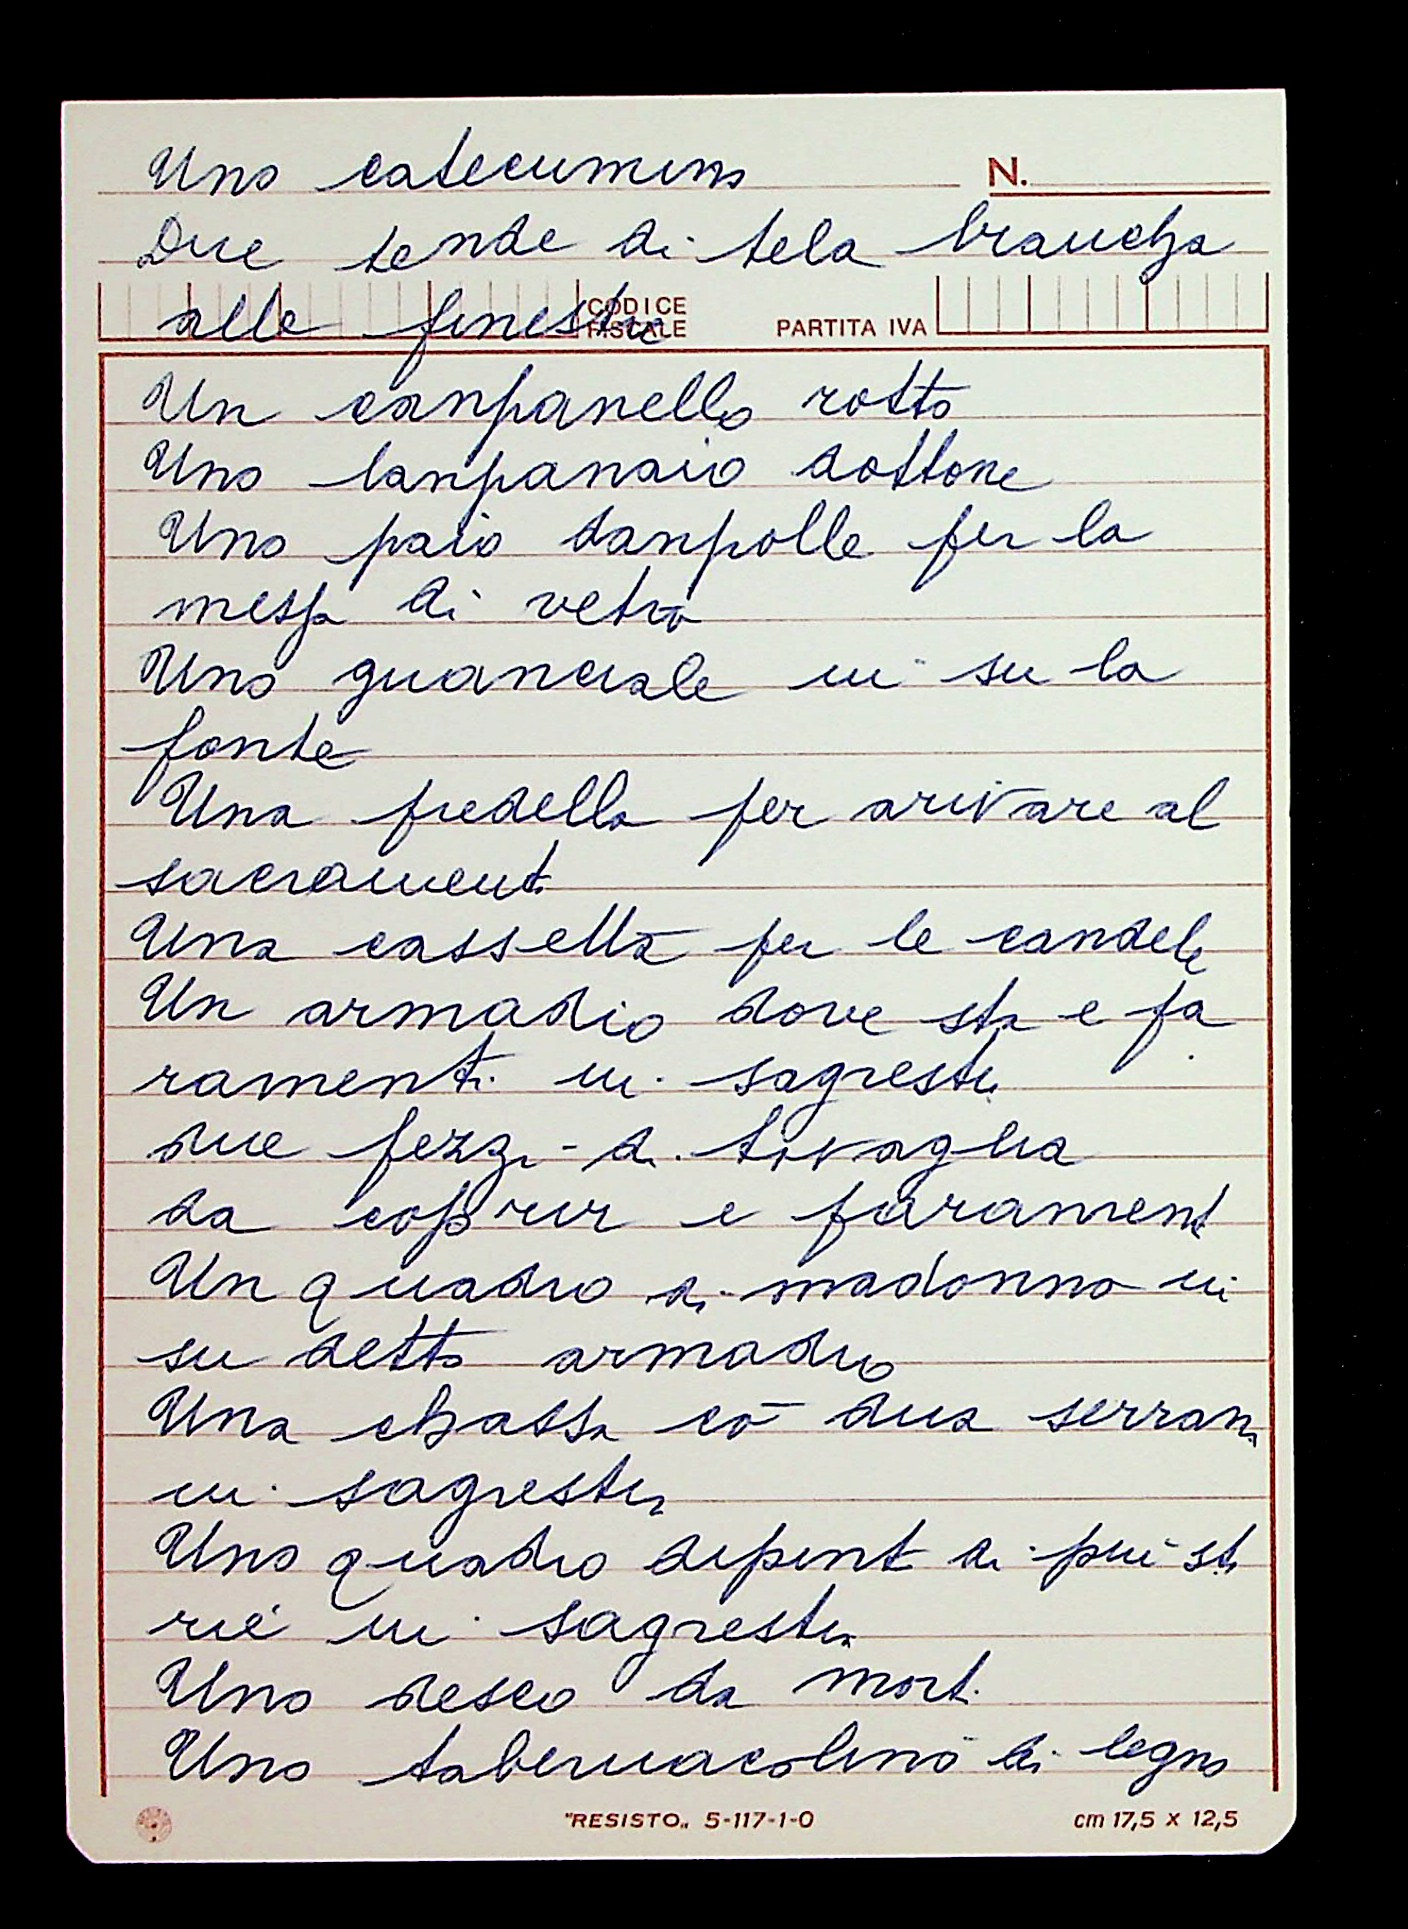 Uno catecumino N.
Due tende di tela biancha
alle finestre CODICE FISCALE PARTITA IVA
Un canpanello rotto
Uno lanpanaio dottone
Uno paio danpolle per la
messa di vetro
Uno guanciale in su la
fonte
Una predella per arivare al
sacramento
Una cassetta per le candele
Un armadio dove sta e pa
ramenti in sagrestia
due pezzi di tovaglia
da coprir e parament
Un quadro di madonna in
su detto armadio
Una chassa cō dua serrami
in sagrestia
Uno quadro dipint di più st
rie in sagrestia
Uno desco da mort
Uno tabernacolino di legno
"RESISTO„ 5-117-1-0 cm 17,5 x 12,5